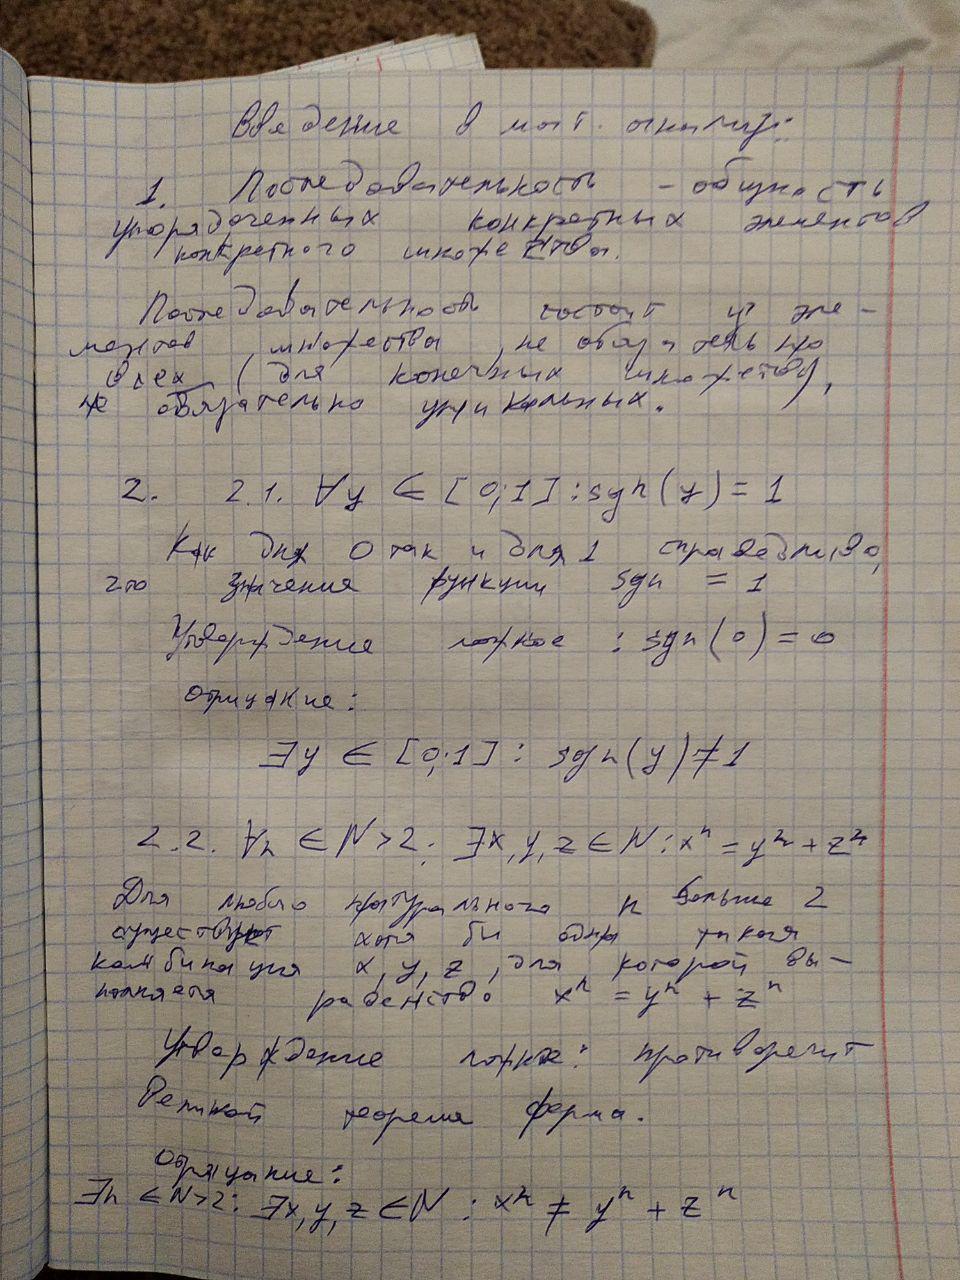 Введение в мат. анализ:
1. Последовательность - общность
упорядоченных конкретных элементов
конкретного множества.
Последовательность состоит из эле-
ментов множества, не обязательно
всех (для конечных множеств),
не обязательно уникальных.
2. 2.1. ∀y ∈ [0;1]: sgn(y) = 1
Как для 0 так и для 1 справедливо,
что значения функции sgn = 1
Утверждение ложное: sgn(0) = 0
отрицание:
∃y ∈ [0;1]: sgn(y) ≠ 1
2.2. ∀n ∈ N > 2: ∃x, y, z ∈ N: xⁿ = yⁿ + zⁿ
Для любого натурального n больше 2
существует хотя би одна такая
комбинация x, y, z, для которой вы-
полняется равенство xⁿ = yⁿ + zⁿ
Утверждение ложное: противоречит
Великой теореме ферма.
отрицание:
∃n ∈ N > 2: ∃x, y, z ∈ N: xⁿ ≠ yⁿ + zⁿ